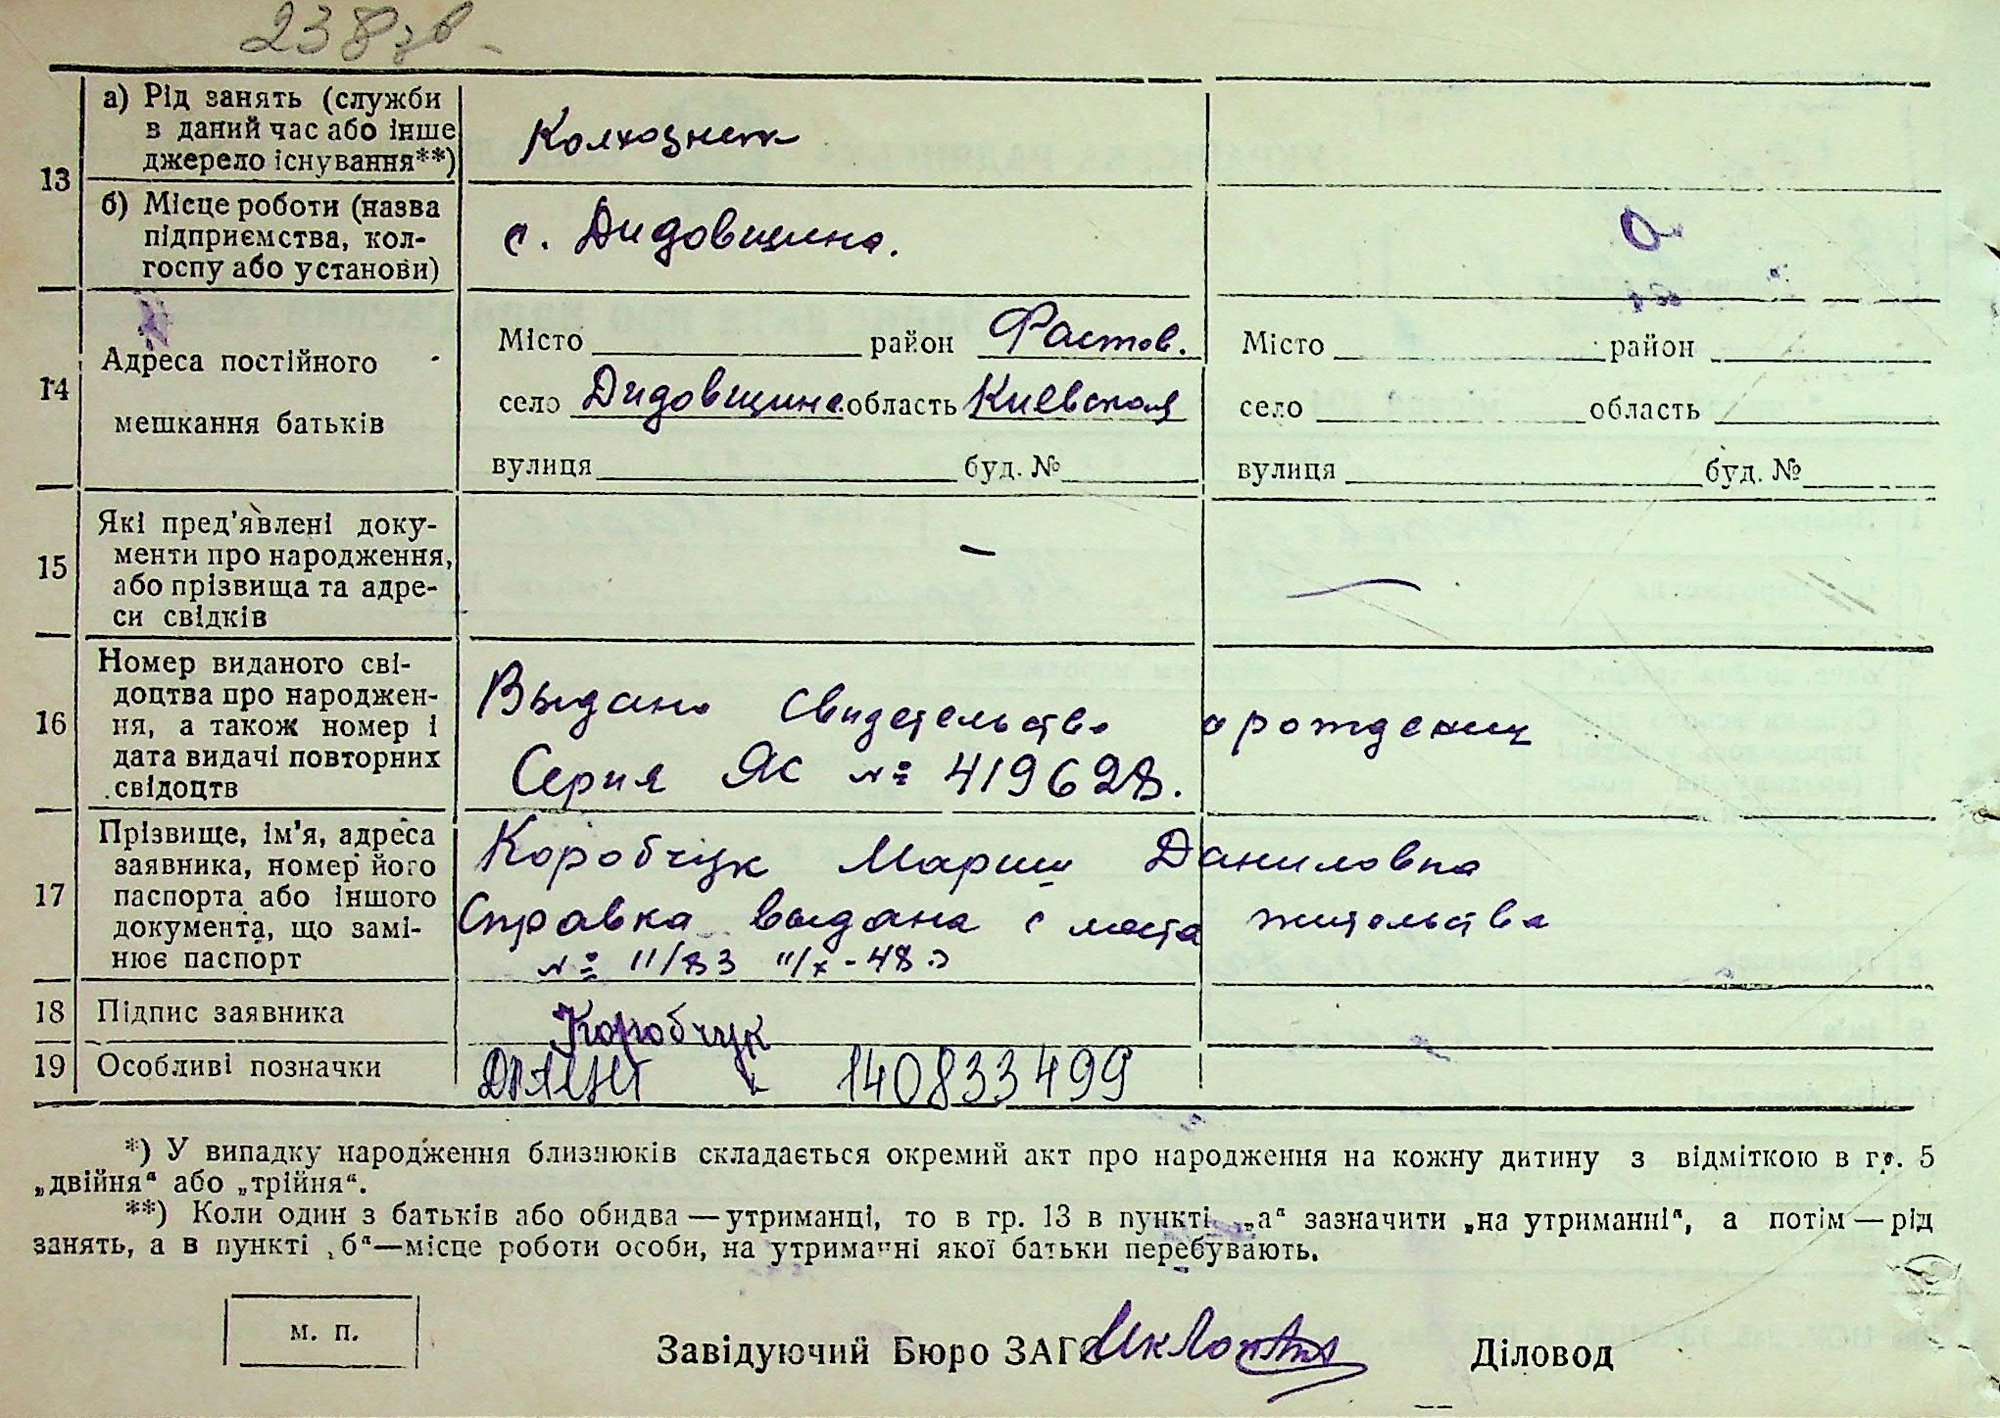 238 зв
13 а) Рід занять (служби в даний час або інше джерело існування**)
Колхозник
б) Місце роботи (назва підприємства, колгоспу або установи)
с. Дидовщина.
14 Адреса постійного мешкання батьків
Місто район Фастов. Місто район
село Дидовщина область Киевская село область
вулиця буд. № вулиця буд. №
15 Які пред’явлені документи про народження, або прізвища та адреси свідків
— —
16 Номер виданого свідоцтва про народження, а також номер і дата видачі повторних свідоцтв
Выдано свидетельство о рождении
Серия ЯС № 419628.
17 Прізвище, ім’я, адреса заявника, номер його паспорта або іншого документа, що замінює паспорт
Коробчук Мария Даниловна
Справка выдана с места жительства
№ 11/83 11/х - 48 г
18 Підпис заявника
Коробчук
19 Особливі позначки
140833499
*) У випадку народження близнюків складається окремий акт про народження на кожну дитину з відміткою в гр. 5
„двійня“ або „трійня“.
**) Коли один з батьків або обидва — утриманці, то в гр. 13 в пункті „а“ зазначити „на утриманні“, а потім — рід
занять, а в пункті „б“—місце роботи особи, на утриманні якої батьки перебувають.
м. п.
Завідуючий Бюро ЗАГС Діловод